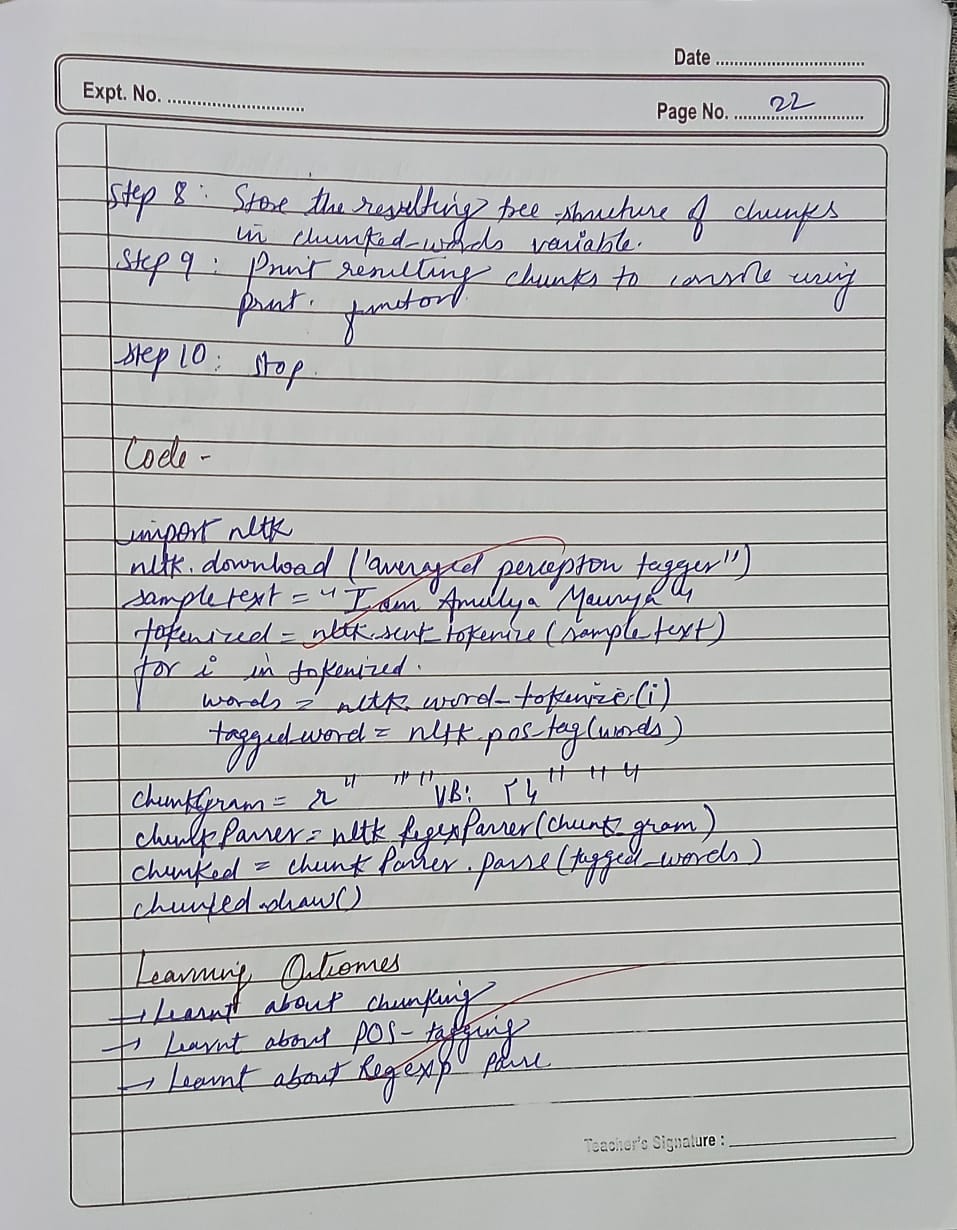 Date
Expt. No.
Page No. 22
Step 8 : Store the resulting tree structure of chunks
in chunked-words variable.
Step 9 : Print resulting chunks to console using
print. function
Step 10 : Stop.
Code -
import nltk
nltk. download ('averaged percepton tagger")
sample text = " I am Amulya Maurya "
tokenized = nltk.sent_tokenize (sample text)
for i in tokenized.
words = nltk. word-tokenize (i)
tagged word = nltk.pos-tag (words)
chunkGram = r" " " " VB: { } " " "
chunk Parser = nltk RegexParser (chunk_gram)
chunked = chunk Parser . parse (tagged_words)
chunked.draw()
Learning Outcomes
→ Learnt about chunking
→ Learnt about POS-tagging
→ Learnt about Regexp Parse
Teacher's Signature :